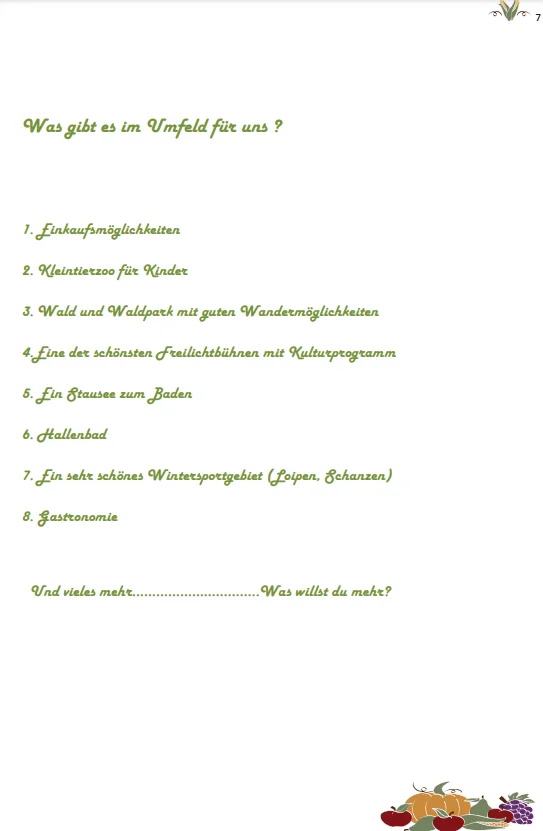 7
Was gibt es im Umfeld für uns ?
1. Einkaufsmöglichkeiten
2. Kleintierzoo für Kinder
3. Wald und Waldpark mit guten Wandermöglichkeiten
4.Eine der schönsten Freilichtbühnen mit Kulturprogramm
5. Ein Stausee zum Baden
6. Hallenbad
7. Ein sehr schönes Wintersportgebiet (Loipen, Schanzen)
8. Gastronomie
Und vieles mehr................................Was willst du mehr?